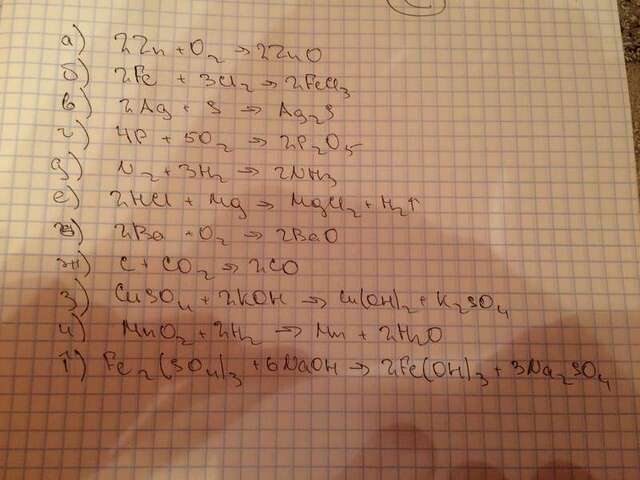 а) 2Zn + O2 → 2ZnO
б) 2Fe + 3Cl2 → 2FeCl3
в) 2Ag + S → Ag2S
г) 4P + 5O2 → 2P2O5
д) N2 + 3H2 → 2NH3
е) 2HCl + Mg → MgCl2 + H2↑
ё) 2Ba + O2 → 2BaO
ж) C + CO2 → 2CO
з) CuSO4 + 2KOH → Cu(OH)2 + K2SO4
и) MnO2 + 2H2 → Mn + 2H2O
й) Fe2(SO4)3 + 6NaOH → 2Fe(OH)3 + 3Na2SO4